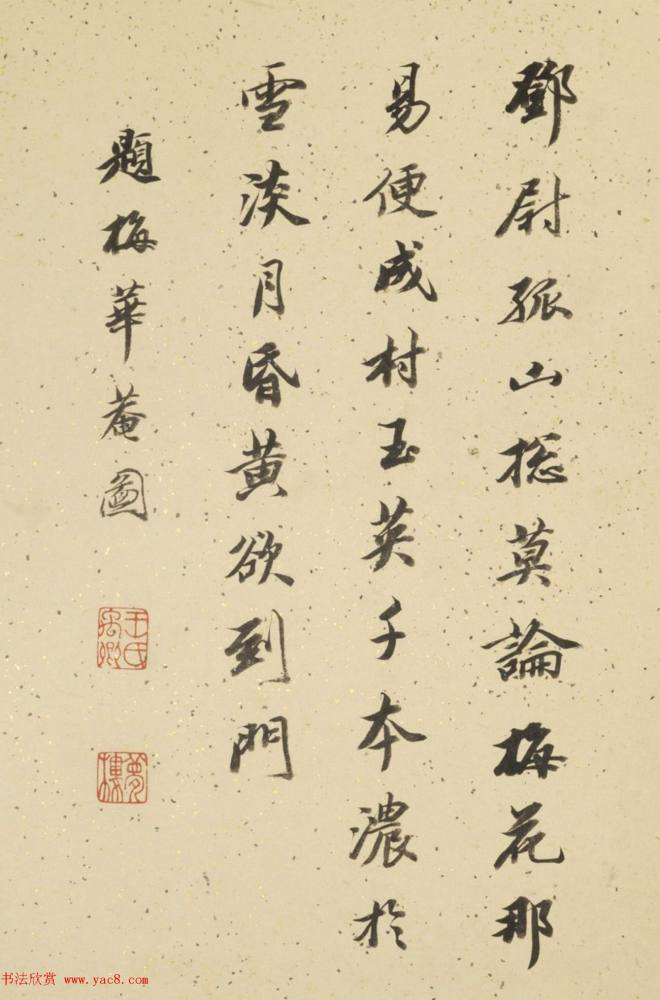 鄧尉孤山摠莫論梅花那
易便成村玉英千本濃於
雪淡月昏黄欲到門
題梅華菴圖
王氏禹卿
夢樓
书法欣赏 www.yac8.com